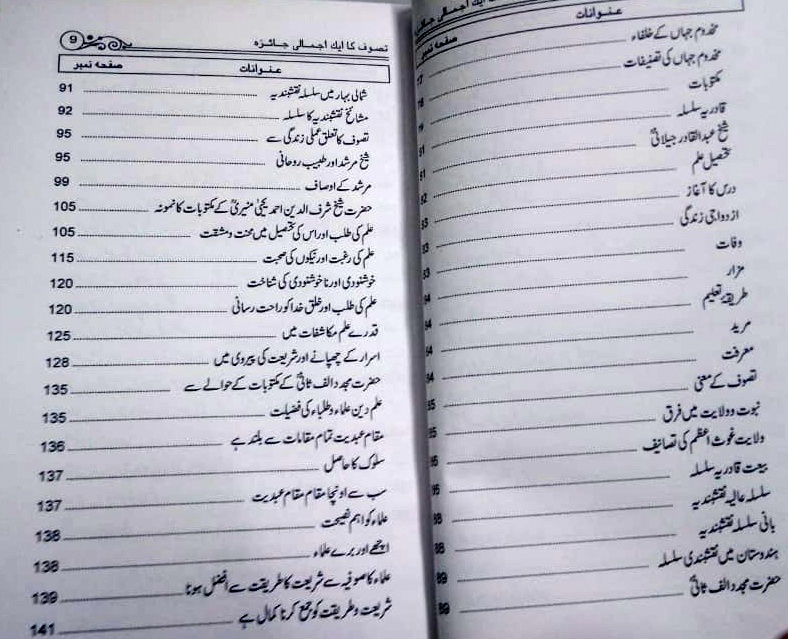 تصوف کا ایک اجمالی جائزہ
عنوانات
صفحہ نمبر
مخدوم جہاں کے خلفاء 77
مخدوم جہاں کی تصنیفات
مکتوبات 78
قادریہ سلسلہ
شیخ عبدالقادر جیلانیؒ
تحصیل علم
درس کا آغاز
ازدواجی زندگی
وفات
مزار
طریقۂ تعلیم
مرید
معرفت
تصوف کے معنی
نبوت و ولایت میں فرق
ولایت غوث اعظم کی تصانیف
بیعت قادریہ سلسلہ
سلسلہ عالیہ نقشبندیہ
بانی سلسلہ نقشبندیہ 88
ہندوستان میں نقشبندی سلسلہ 89
حضرت مجدد الف ثانیؒ 89
تصوف کا ایک اجمالی جائزہ 9
عنوانات صفحہ نمبر
شمالی بہار میں سلسلہ نقشبندیہ 91
مشائخ نقشبندیہ کا سلسلہ 92
تصوف کا تعلق عملی زندگی سے 95
شیخ مرشد اور طبیب روحانی 95
مرشد کے اوصاف 99
حضرت شیخ شرف الدین احمد یحییٰ منیریؒ کے مکتوبات کا نمونہ 105
علم کی طلب اور اس کی تحصیل میں محنت و مشقت 105
علم کی رغبت اور نیکوں کی صحبت 115
خوشنودی اور ناخوشنودی کی شناخت 120
علم کی طلب اور خلق خدا کو راحت رسانی 120
قدرے علم مکاشفات میں 125
اسرار کے چھپانے اور شریعت کی پیروی میں 128
حضرت مجدد الف ثانیؒ کے مکتوبات کے حوالے سے 135
علم دین علماء و طلباء کی فضیلت 135
مقام عبدیت تمام مقامات سے بلند ہے 136
سلوک کا حاصل 137
سب سے اونچا مقام مقام عبدیت 137
علماء کو اہم نصیحت 138
اچھے اور برے علماء 138
علماء کا صوفیہ سے شریعت کا طریقت سے افضل ہونا 139
شریعت و طریقت کو جمع کرنا کمال ہے 141